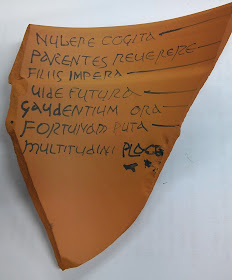 NVLERE COGITA
PARENTES REUERERE
FILIIS IMPERA
UIDE FUTURA
GAUDENTIUM ORA
FORTUNAM PUTA
MULTITUDINI PLACE